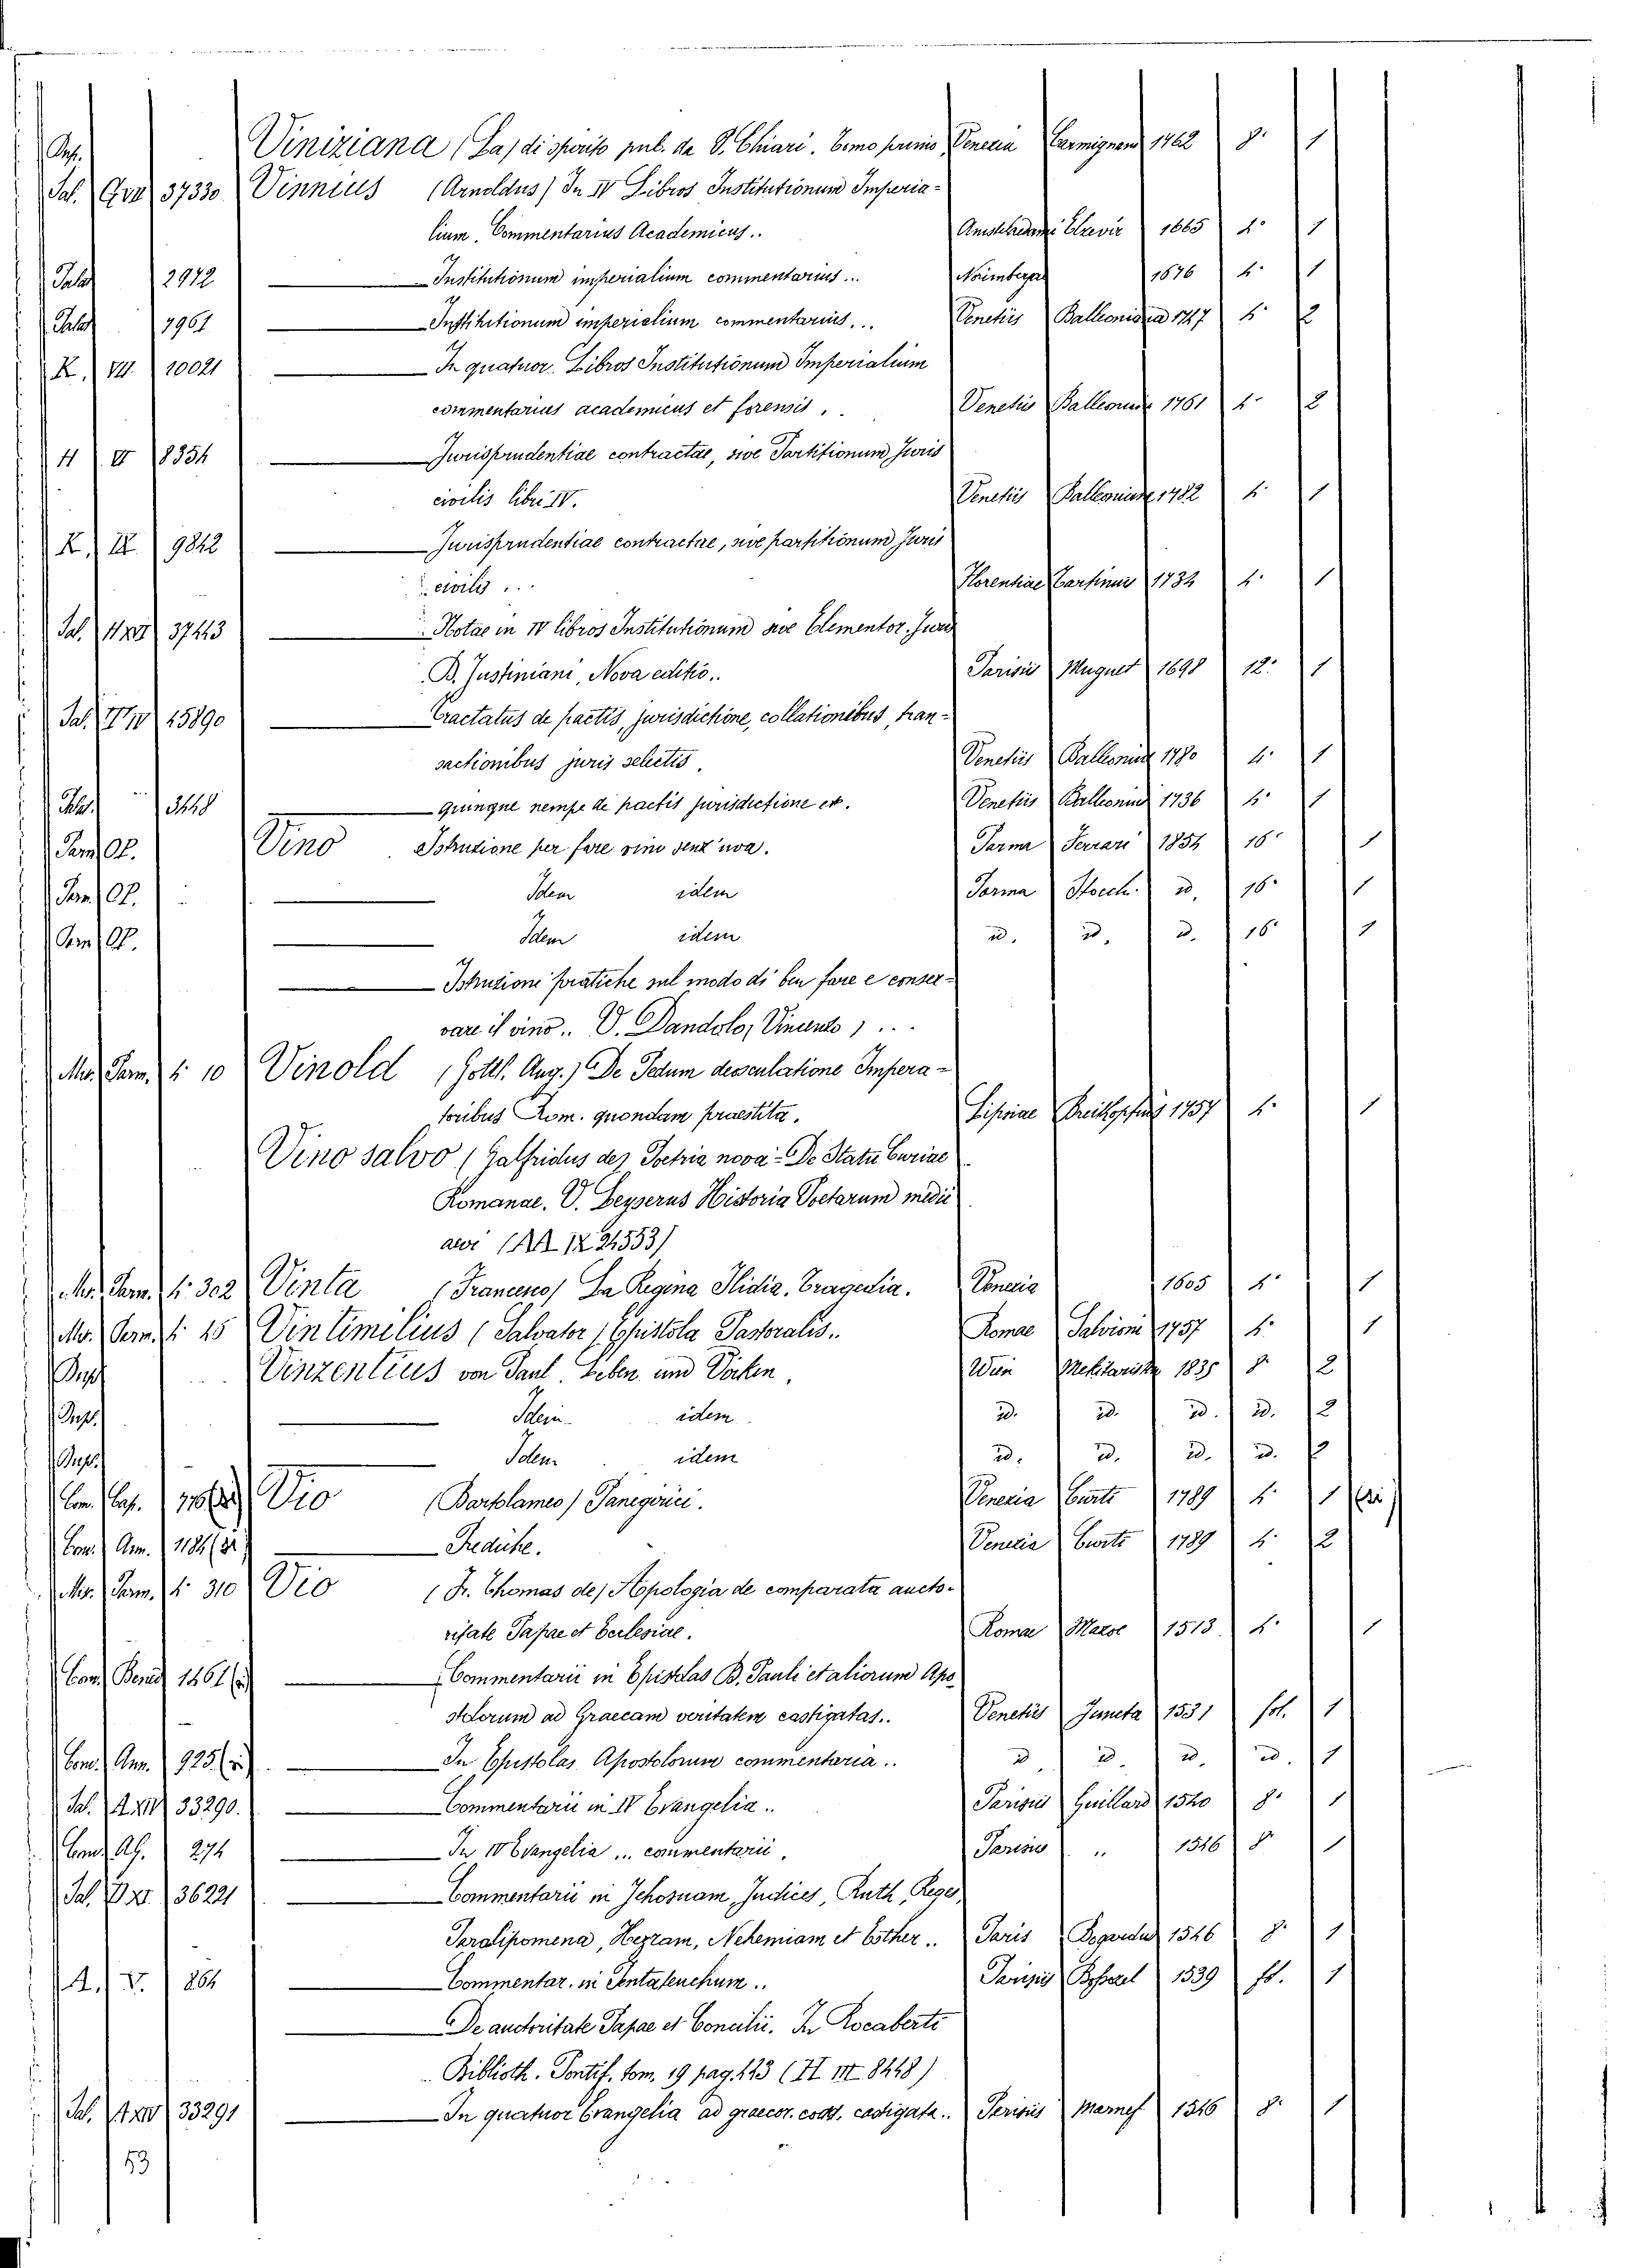 Viniziana (La) di spirito pub. da P. Chiari. Tomo primo Venezia Carmignani 1762 8° 1
Sal. 37330 Vinnius (Arnoldus) In IV Libros Institutionum Imperia-
lium, Commentarius Academicus.. Elzevir 1665 4° 1
2972 Institutionum imperialium commentarius ... 1676 4° 1
7961 Institutionum imperialium commentarius, .. Venetiis 1747 4° 2
K. VII. 10021 In quatuor Libros Institutionum Imperialium
commentarius academicus et forensis, . Venetiis 1761 4° 2
H II 8354 Jurisprudentiae contractae, sive Partitionum Juris
civilis libri IV. Venetiis 4° 1
K. IX 9842 Jurisprudentiae contractae, sive partitionum Juris
civilis .. Florentiae 1734 4° 1
Sal. 37443 Notae in IV libros Institutionum sive Elementor. Juris
B. Justiniani, Nova editio.. Parisiis Muguet 1698 12° 1
Sal. 45890 Tractatus de pactis, jurisdictione, collationibus, tran-
sactionibus juris selectis. Venetiis 1780 4° 1
3448 quinque nempe de pactis jurisdictione etc. Venetiis 1736 4° 1
Parm. Of. Vino Istruzione per fare vino senz'uva. Parma Ferrari 1854 16° 1
Parm. Of. Idem idem Parma id. 16° 1
Parm. Of. Idem idem id. id. id. 16° 1
Istruzioni pratiche sul modo di ben fare e conser-
vare il vino.. V. Dandolo, Vincenzo ) ..
Mis. Parm. 4° 10 Vinold (Gottl. Aug.) De Pedum desculatione Impera-
toribus Rom. quondam praestita. Lipsiae 1757 4° 1
Vino salvo (Galfridus de) Poetria nova - De Statu Curiae
Romanae. V. Leyserus Historia Poetarum medii
aevi (AA IX 24553)
Mis. Parm. 4° 302 Vinta (Francesco) La Regina Ilidia. Tragedia. Venezia 1605 4° 1
Mis. Parm. 4° 45 Vintimilius (Salvator) Epistola Pastoralis.. Romae Salvioni 1757 4° 1
Vinzentius von Paul. Leben und Wien 1835 8° 2
Idem idem id. id. id. id. 2
Idem idem id. id. id. id. 2
Com. Cap. Vio (Bartolameo) Panegirici. Venezia Curti 1789 4° 1
Com. Ann. Prediche. Venezia Curti 1789 4° 2
Mis. Parm. 4° 310 Vio (Fr. Thomas de) Apologia de comparata aucto-
ritate Papae et Ecclesiae. Romae 1513. 4° 1
Com. Bened. 1461 Commentarii in Epistolas B. Pauli et aliorum Apo-
stolorum ad Graecam veritatem castigatas.. Venetiis Juncta 1531 fol. 1
Com. Ann. 925 In Epistolas Apostolorum commentaria.. id. id. id. id. 1
Sal. 33290. Commentarii in IV Evangelia.. Parisiis Guillard 1540 8° 1
Com. 274 In IV Evangelia ... commentarii. Parisiis .. 1546 8° 1
Sal. 36221 Commentarii in Jehosuam, Judices, Ruth, Reges,
Paralipomena, Hezram, Nehemiam et Esther.. Paris 1546 8° 1
A. V. 864 Commentar. in Pentateuchum.. Parisiis 1539 fol. 1
De auctoritate Papae et Concilii. In Rocaberti
Biblioth. Pontif. tom. 19 pag. 443 (H III 8448)
Sal. 33291 In quatuor Evangelia ad graecor. codd. castigata.. Parisiis Marnef 1546 8° 1
53